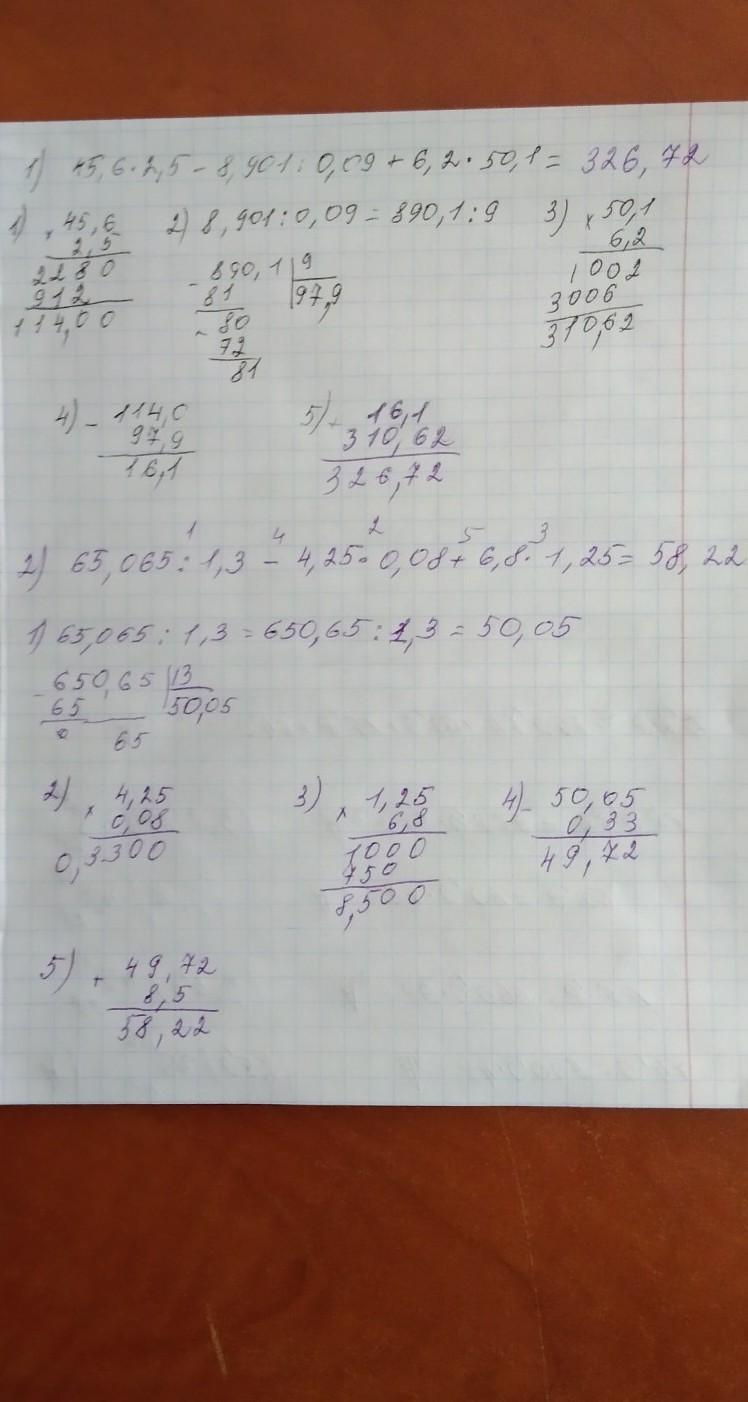 1) 45,6·2,5 – 8,901:0,09 + 6,2·50,1 = 326,72
1) × 45,6
2,5
2280
912
114,00
2) 8,901:0,09 = 890,1:9
- 890,1 | 9
81 | 97,9
- 80
72
81
3) × 50,1
6,2
1002
3006
310,62
4) - 114,0
97,9
16,1
5) + 16,1
310,62
326,72
1 4 2 5 3
2) 65,065 : 1,3 – 4,25·0,08 + 6,8·1,25 = 58,22
1) 65,065 : 1,3 = 650,65 : 1,3 = 50,05
- 650,65 | 13
65 | 50,05
0 65
2) × 4,25
0,08
0,3300
3) × 1,25
6,8
1000
750
8,500
4) - 50,05
0,33
49,72
5) + 49,72
8,5
58,22